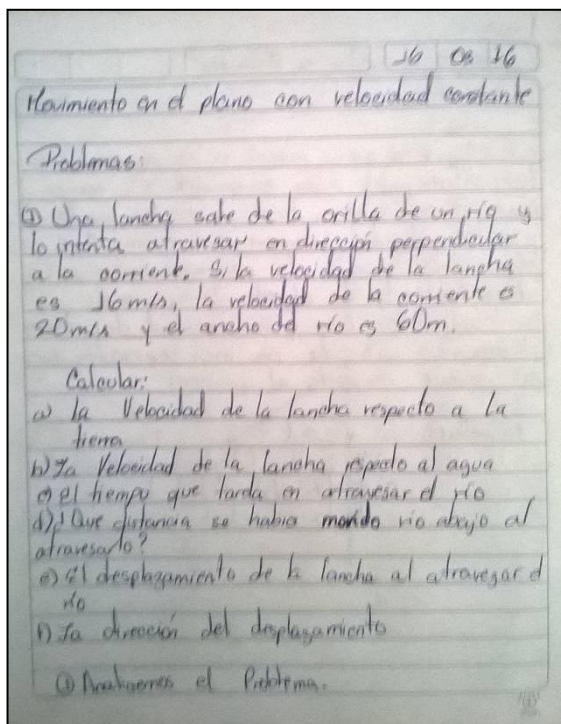 16 08 16
Movimiento en el plano con velocidad constante
Problemas:
① Una lancha sale de la orilla de un río y
lo intenta atravesar en dirección perpendicular
a la corriente. Si la velocidad de la lancha
es 16 m/s, la velocidad de la corriente es
20 m/s y el ancho del río es 60m.
Calcular:
a) la Velocidad de la lancha respecto a la
tierra
b) la Velocidad de la lancha respecto al agua
c) el tiempo que tarda en atravesar el río
d) ¿Que distancia se habra movido rio abajo al
atravesarlo?
e) El desplazamiento de la lancha al atravezar el
río
f) la dirección del desplasamiento
① Analisemos el Problema.